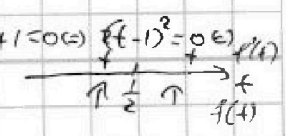 +1=0⇔ (t-1)²=0⇔
+ + f'(t)
t
↑ 1/2 ↑
f(t)